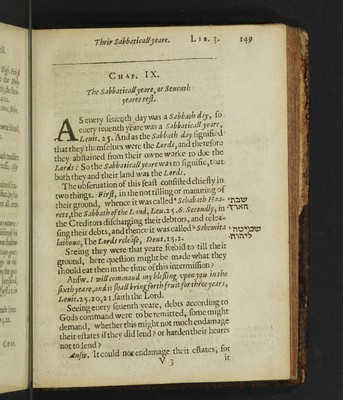 Their Sabbaticall yeare. LIB. 3. 149
CHAP. IX.
The Sabbaticall yeare, or Seuenth
yeares rest.
AS euery seuenth day was a Sabbath day, so
euery seuenth yeare was a Sabbaticall yeare,
Levit. 25. And as the Sabbath day signified
that they themselues were the Lords, and therefore
they abstained from their owne worke to doe the
Lords: So the Sabbaticall yeare was to signifie, that
both they and their land was the Lords.
The obseruation of this feast consisted chiefly in
two things. First, in the not tilling or manuring of
their ground, whence it was called Schabath Haa-
rets, the Sabbath of the Land, Leu. 25. 6. Secondly, in
the Creditors discharging their debtors, and relea-
sing their debts, and thence it was called Schemita
laihoua, The Lords release, Deut. 15. 2.
שבת
הארץ
שמיטה
ליהוה
Seeing they were that yeare forbid to till their
ground, here question might be made what they
should eat then in the time of this intermission?
Answ. I will command my blessing vpon you in the
sixth yeare, and it shall bring forth fruit for three yeares,
Levit. 25. 20, 21. saith the Lord.
Seeing euery seuenth yeare, debts according to
Gods command were to be remitted, some might
demand, whether this might not much endamage
their estates if they did lend? or harden their hearts
not to lend?
Answ. It could not endamage their estates, for
V 3 it